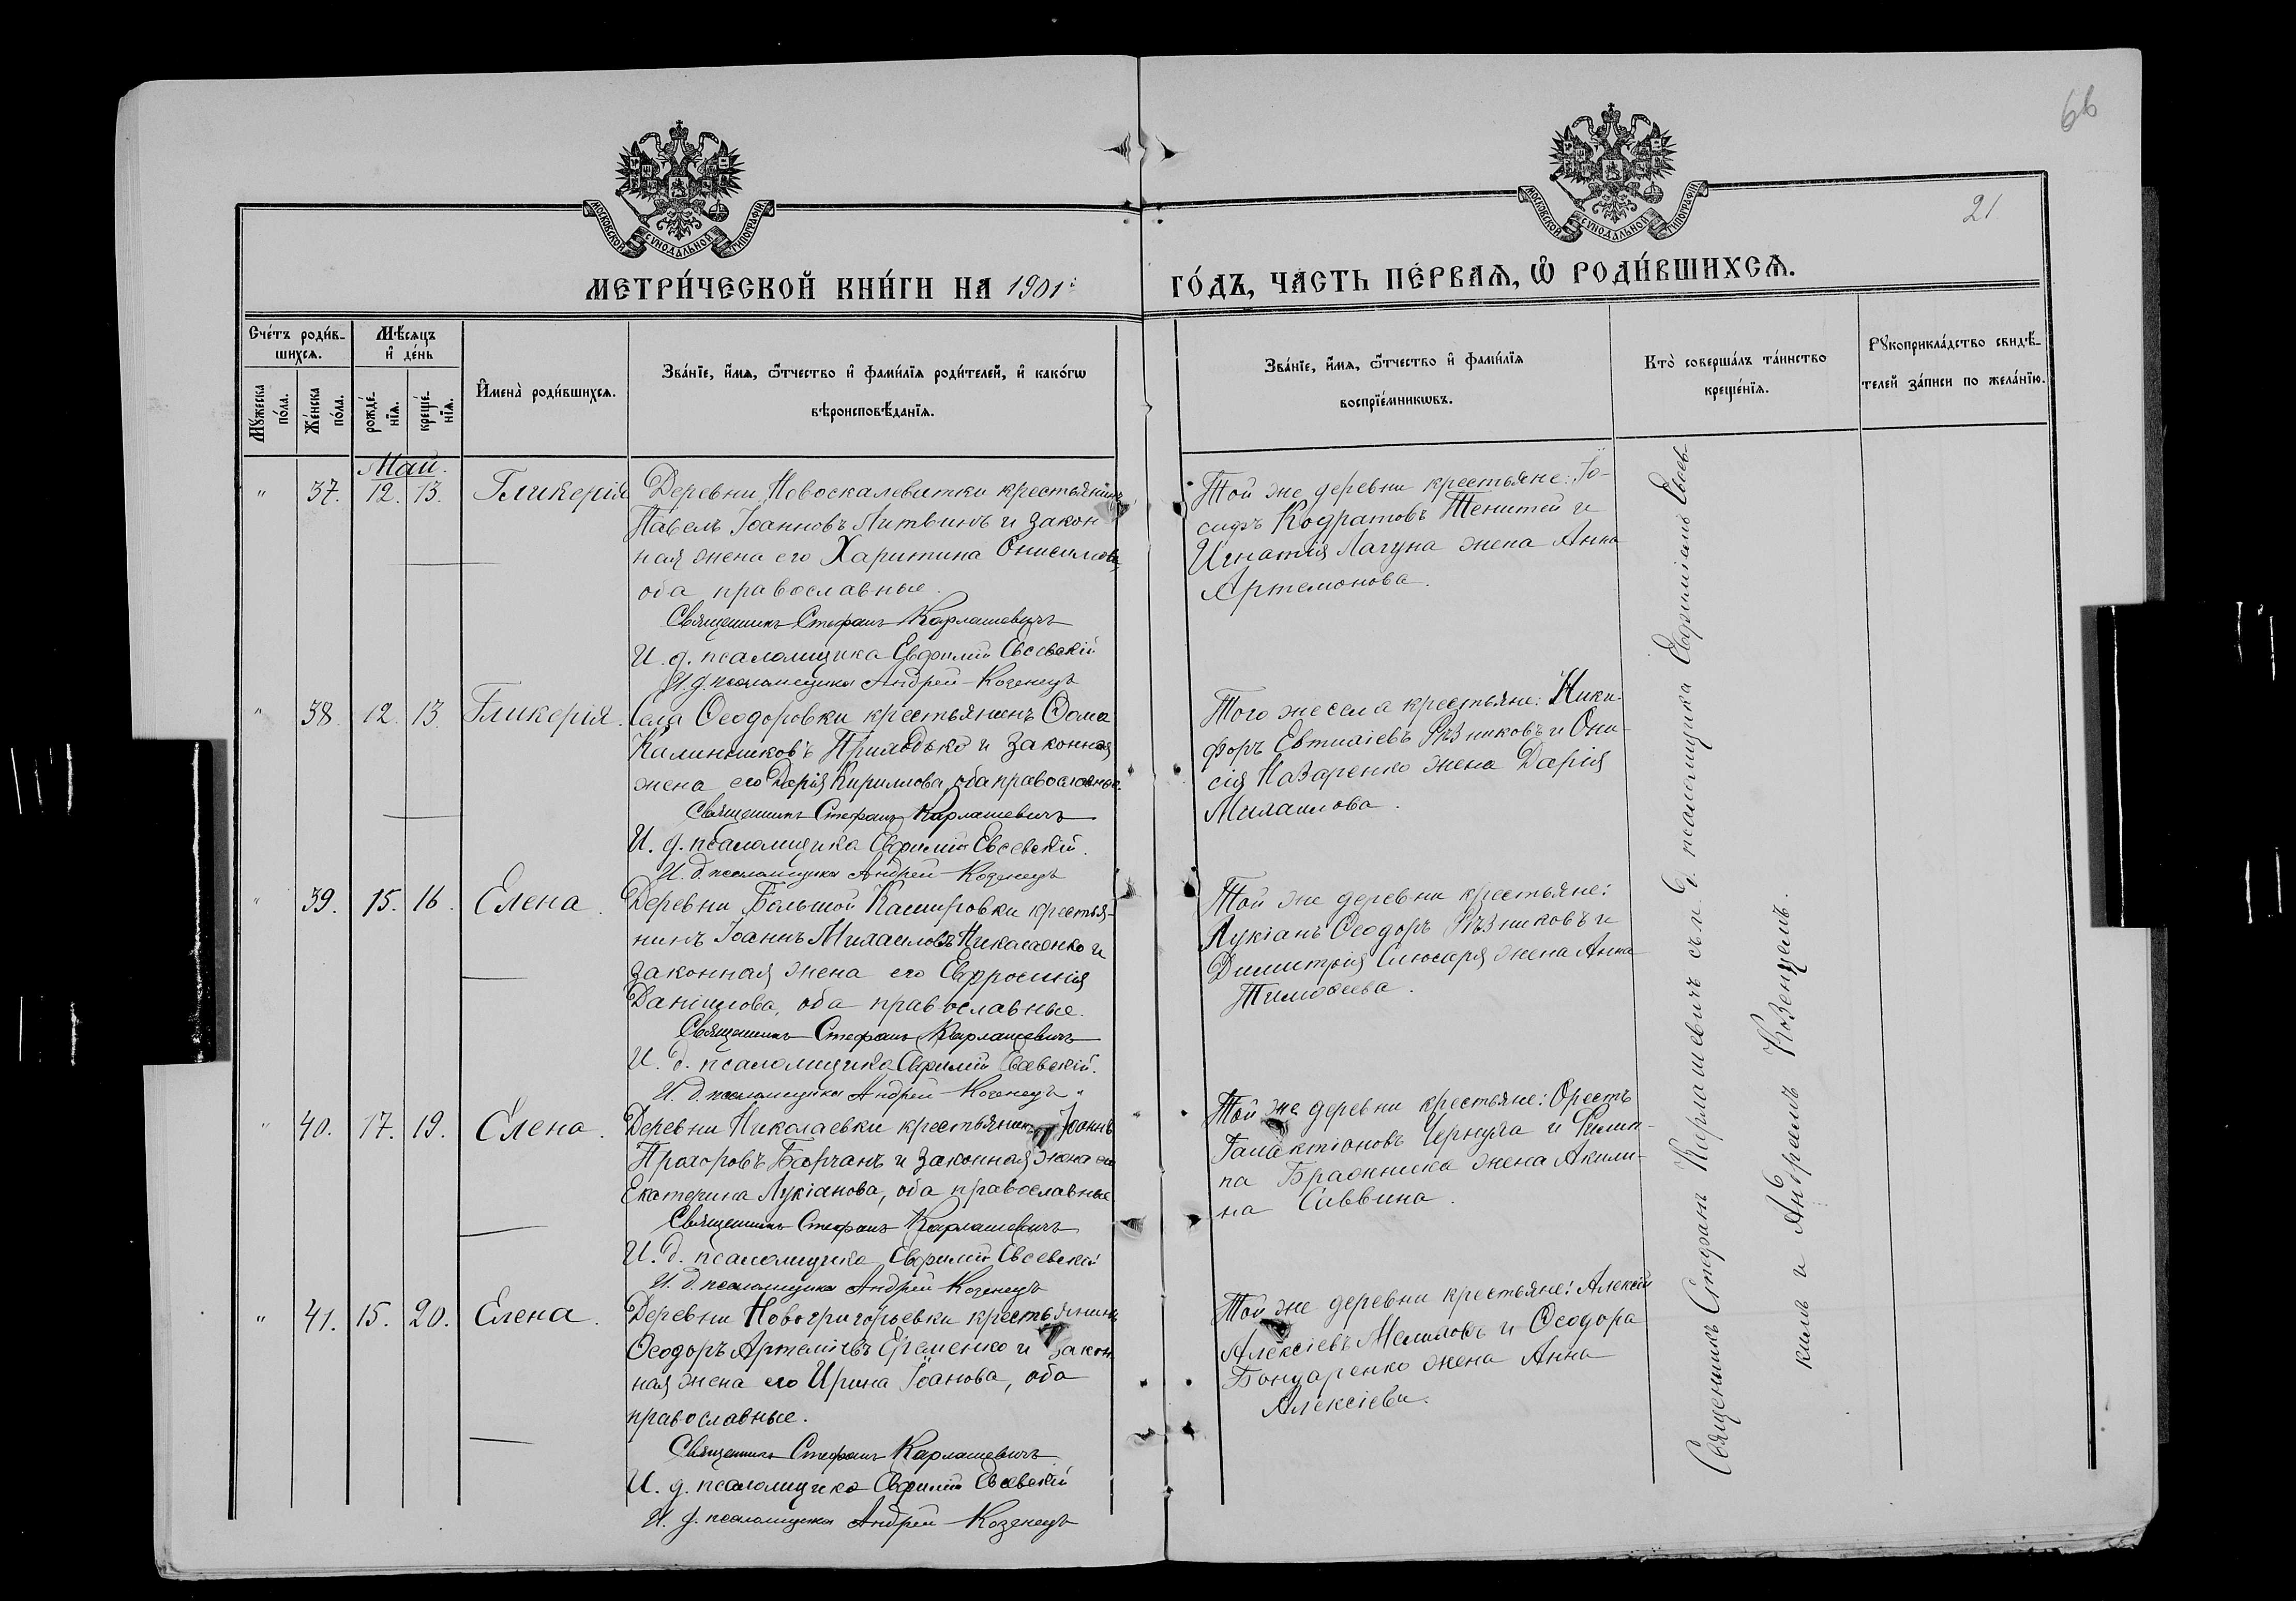 66
21
МОСКОВСКОЙ СѴНОДАЛЬНОЙ ТИПОГРАФІИ
МОСКОВСКОЙ СѴНОДАЛЬНОЙ ТИПОГРАФІИ
МЕТРИ́ЧЕСКОЙ КНИ́ГИ НА 1901й
ГО́ДЪ, ЧА́СТЬ ПЕ́РВАѦ, Ѽ РОДИ́ВШИХСѦ.
Сче́тъ роди́в-
шихсѧ.
Мѣ́сѧцъ
и҆ де́нь
Мꙋ́жеска
по́ла.
Же́нска
по́ла.
рожде́-
нїѧ.
креще́-
нїѧ.
И҆мена̀ роди́вшихсѧ.
Зва́нїе, и҆́мѧ, ѻ҆́тчество и҆ фами́лїѧ роди́телей, и҆ како́гѡ
вѣроисповѣ́данїѧ.
Зва́нїе, и҆́мѧ, ѻ҆́тчество и҆ фами́лїѧ
воспрїе́мникѡвъ.
Кто̀ соверша́лъ та́инство
креще́нїѧ.
Рꙋкоприкла́дство свидѣ́-
телей за́писи по жела́нїю.
Май.
" 37. 12. 13. Гликерія
Деревни Новоскалевитки крестьянинъ
Павелъ Іоанновъ Литвинъ и закон
ная жена его Харитина Онисимова,
оба православные.
Священникъ Стефанъ Карлашевичъ
И. д. псаломщика Евфимій Евсевскій
И. д. псаломщика Андрей Козенецъ
Той же деревни крестьяне: Іо-
сифъ Кодратовъ и
Игнатія Лагуна жена Анна
Артемонова.
" 38. 12. 13. Гликерія.
Села Ѳеодоровки крестьянинъ Ѳома
Калинниковъ и законная
жена его Дарія Кириллова, оба православные.
Священникъ Стефанъ Карлашевичъ
И. д. псаломщика Евфимій Евсевскій.
И. д. псаломщика Андрей Козенецъ
Того же села крестьяне: Ники-
форъ Евтихіевъ Рѣзниковъ и Они-
сія Назаренко жена Дарія
Михаилова.
" 39. 15. 16. Елена.
Деревни Большой Кашировки крестья-
нинъ Іоаннъ Михаиловъ Николаенко и
законная жена его Евфросинія
Даніилова, оба православные.
Священникъ Стефанъ Карлашевичъ
И. д. псаломщика Евфимій Евсевскій.
И. д. псаломщика Андрей Козенецъ
Той же деревни крестьяне:
Лукіанъ Ѳеодоръ Рѣзниковъ и
Димитрія Слюсаря жена Анна
Тимоѳеева.
" 40. 17. 19. Елена.
Деревни Николаевки крестьянинъ Іоаннъ
Прохоровъ Барчанъ и законная жена его
Екатерина Лукіанова, оба православные
Священникъ Стефанъ Карлашевичъ
И. д. псаломщика Евфимій Евсевскій
И. д. псаломщика Андрей Козенецъ
Той же деревни крестьяне: Орестъ
Галактіоновъ Чернуха и Филип-
па жена Акили-
на Саввина.
" 41. 15. 20. Елена.
Деревни Новогригорьевки крестьянинъ
Ѳеодоръ Артеміевъ Еременко и закон
ная жена его Ирина Іоанова, оба
православные.
Священникъ Стефанъ Карлашевичъ
И. д. псаломщика Евфимій Евсевскій
И. д. псаломщика Андрей Козенецъ
Той же деревни крестьяне: Алексій
Алексіевъ и Ѳеодора
Бондаренко жена Анна
Алексіева.
Священникъ Стефанъ Карлашевичъ съ и. д. псаломщика Евфиміемъ Евсев-
кимъ и Андреемъ Козенцемъ.